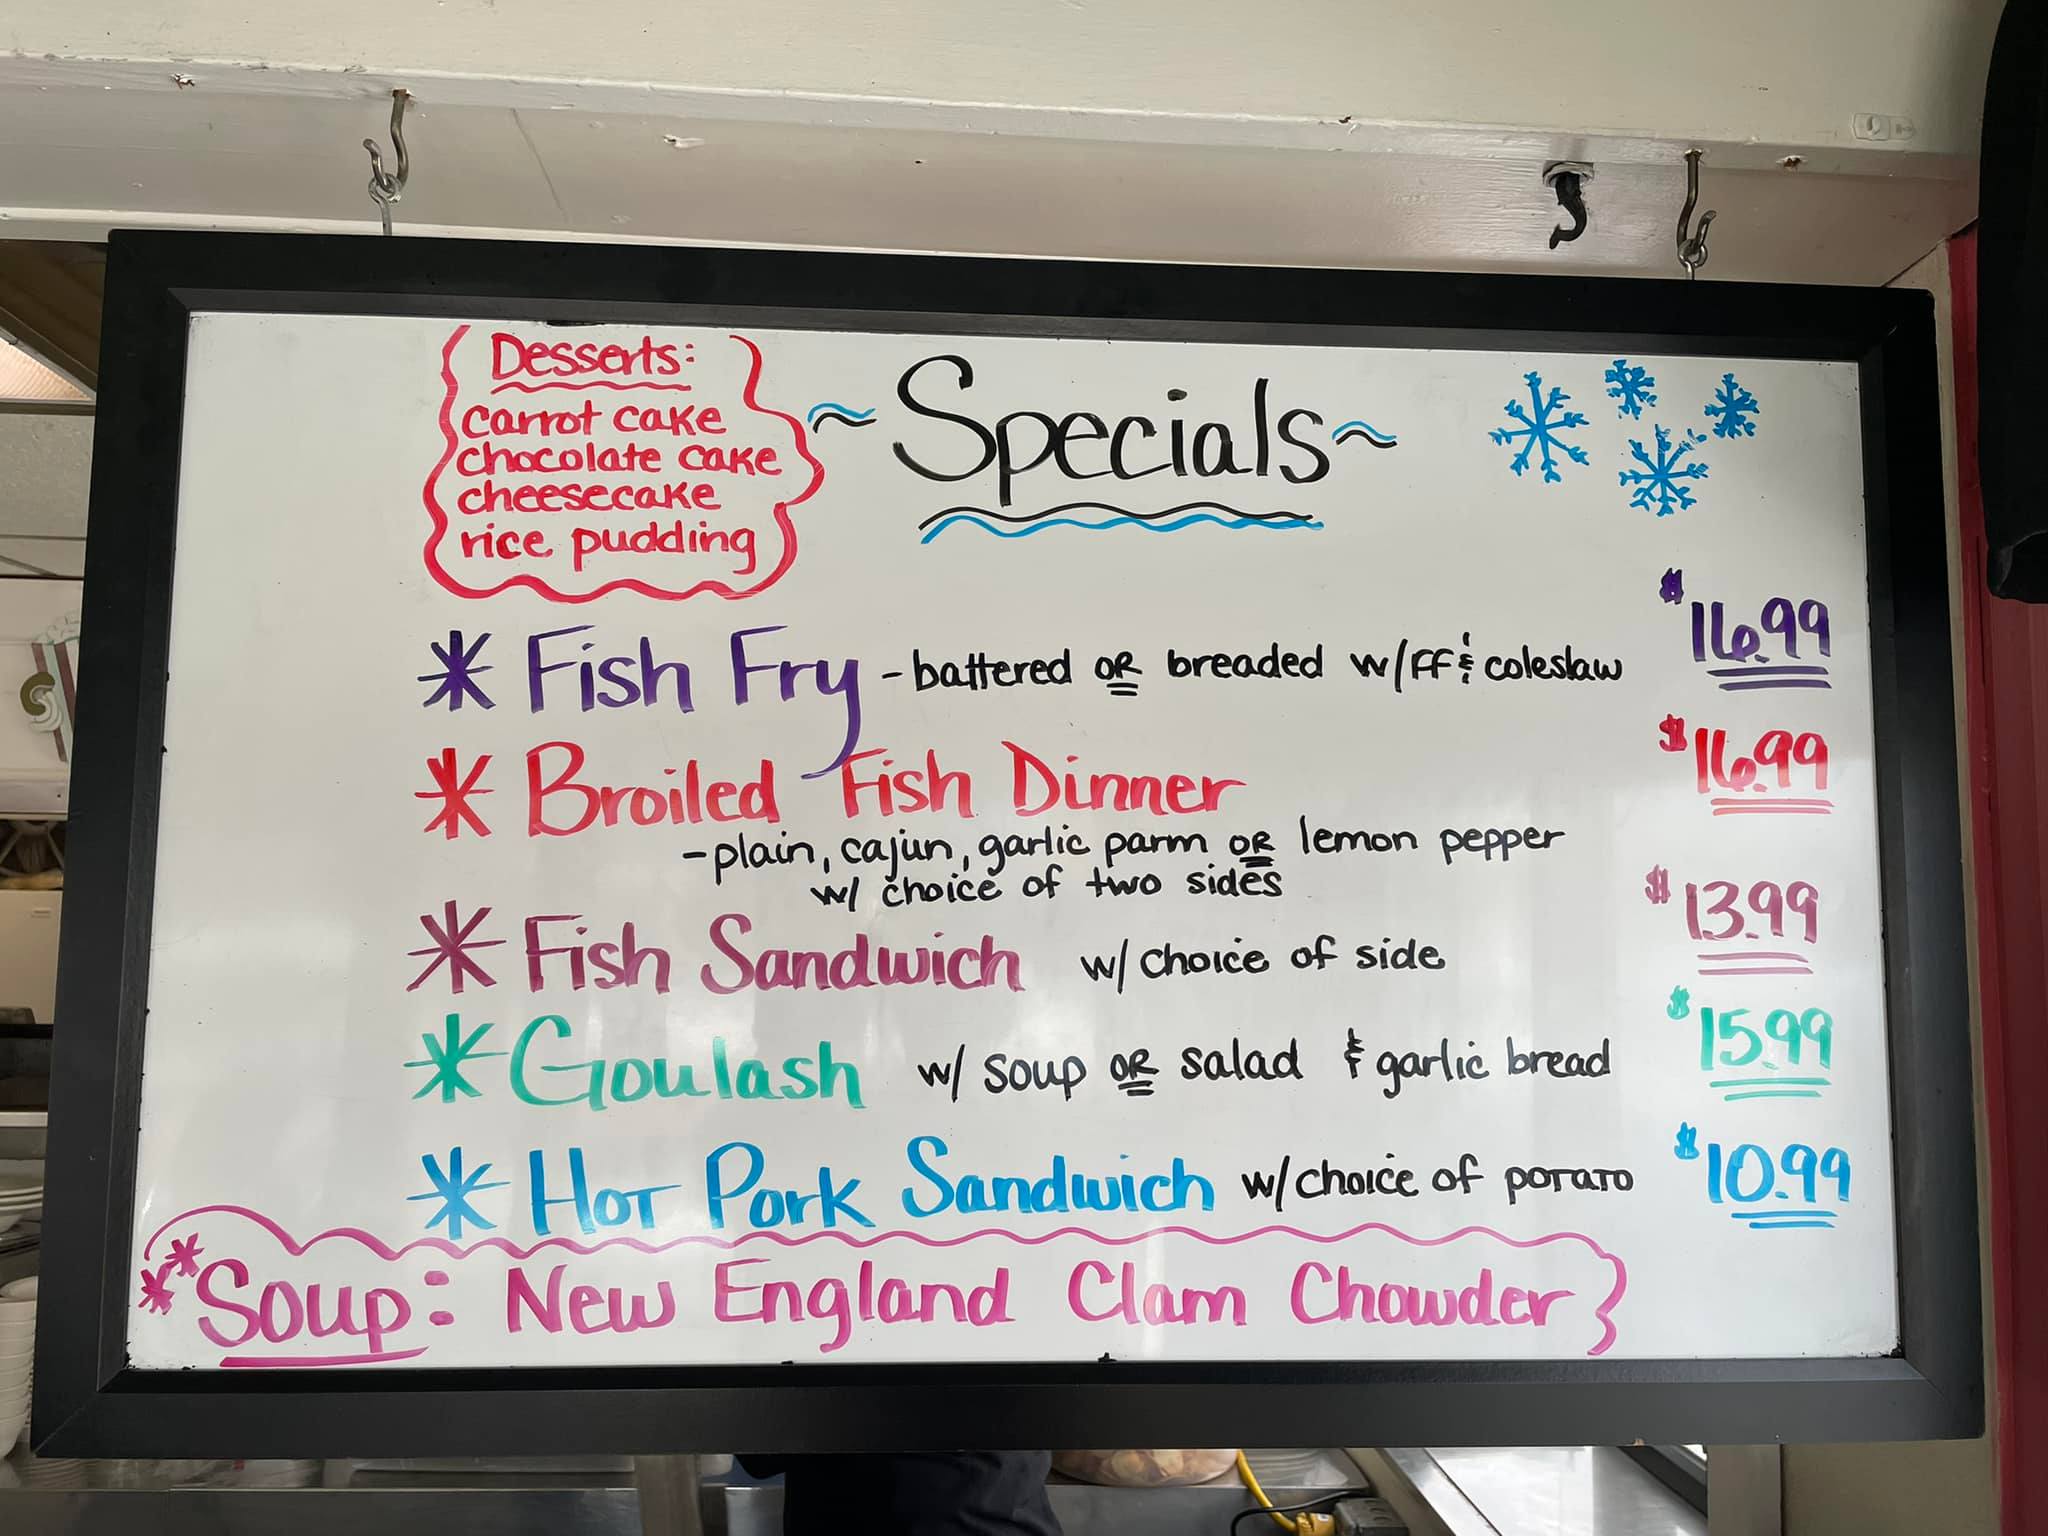 Desserts:
carrot cake
chocolate cake
cheesecake
rice pudding
~Specials~
* Fish Fry -battered OR breaded w/FF & coleslaw $16.99
* Broiled Fish Dinner $16.99
-plain, cajun, garlic parm OR lemon pepper
w/ choice of two sides
* Fish Sandwich w/ choice of side $13.99
* Goulash w/ soup OR salad & garlic bread $15.99
* Hot Pork Sandwich w/choice of potato $10.99
**Soup: New England Clam Chowder